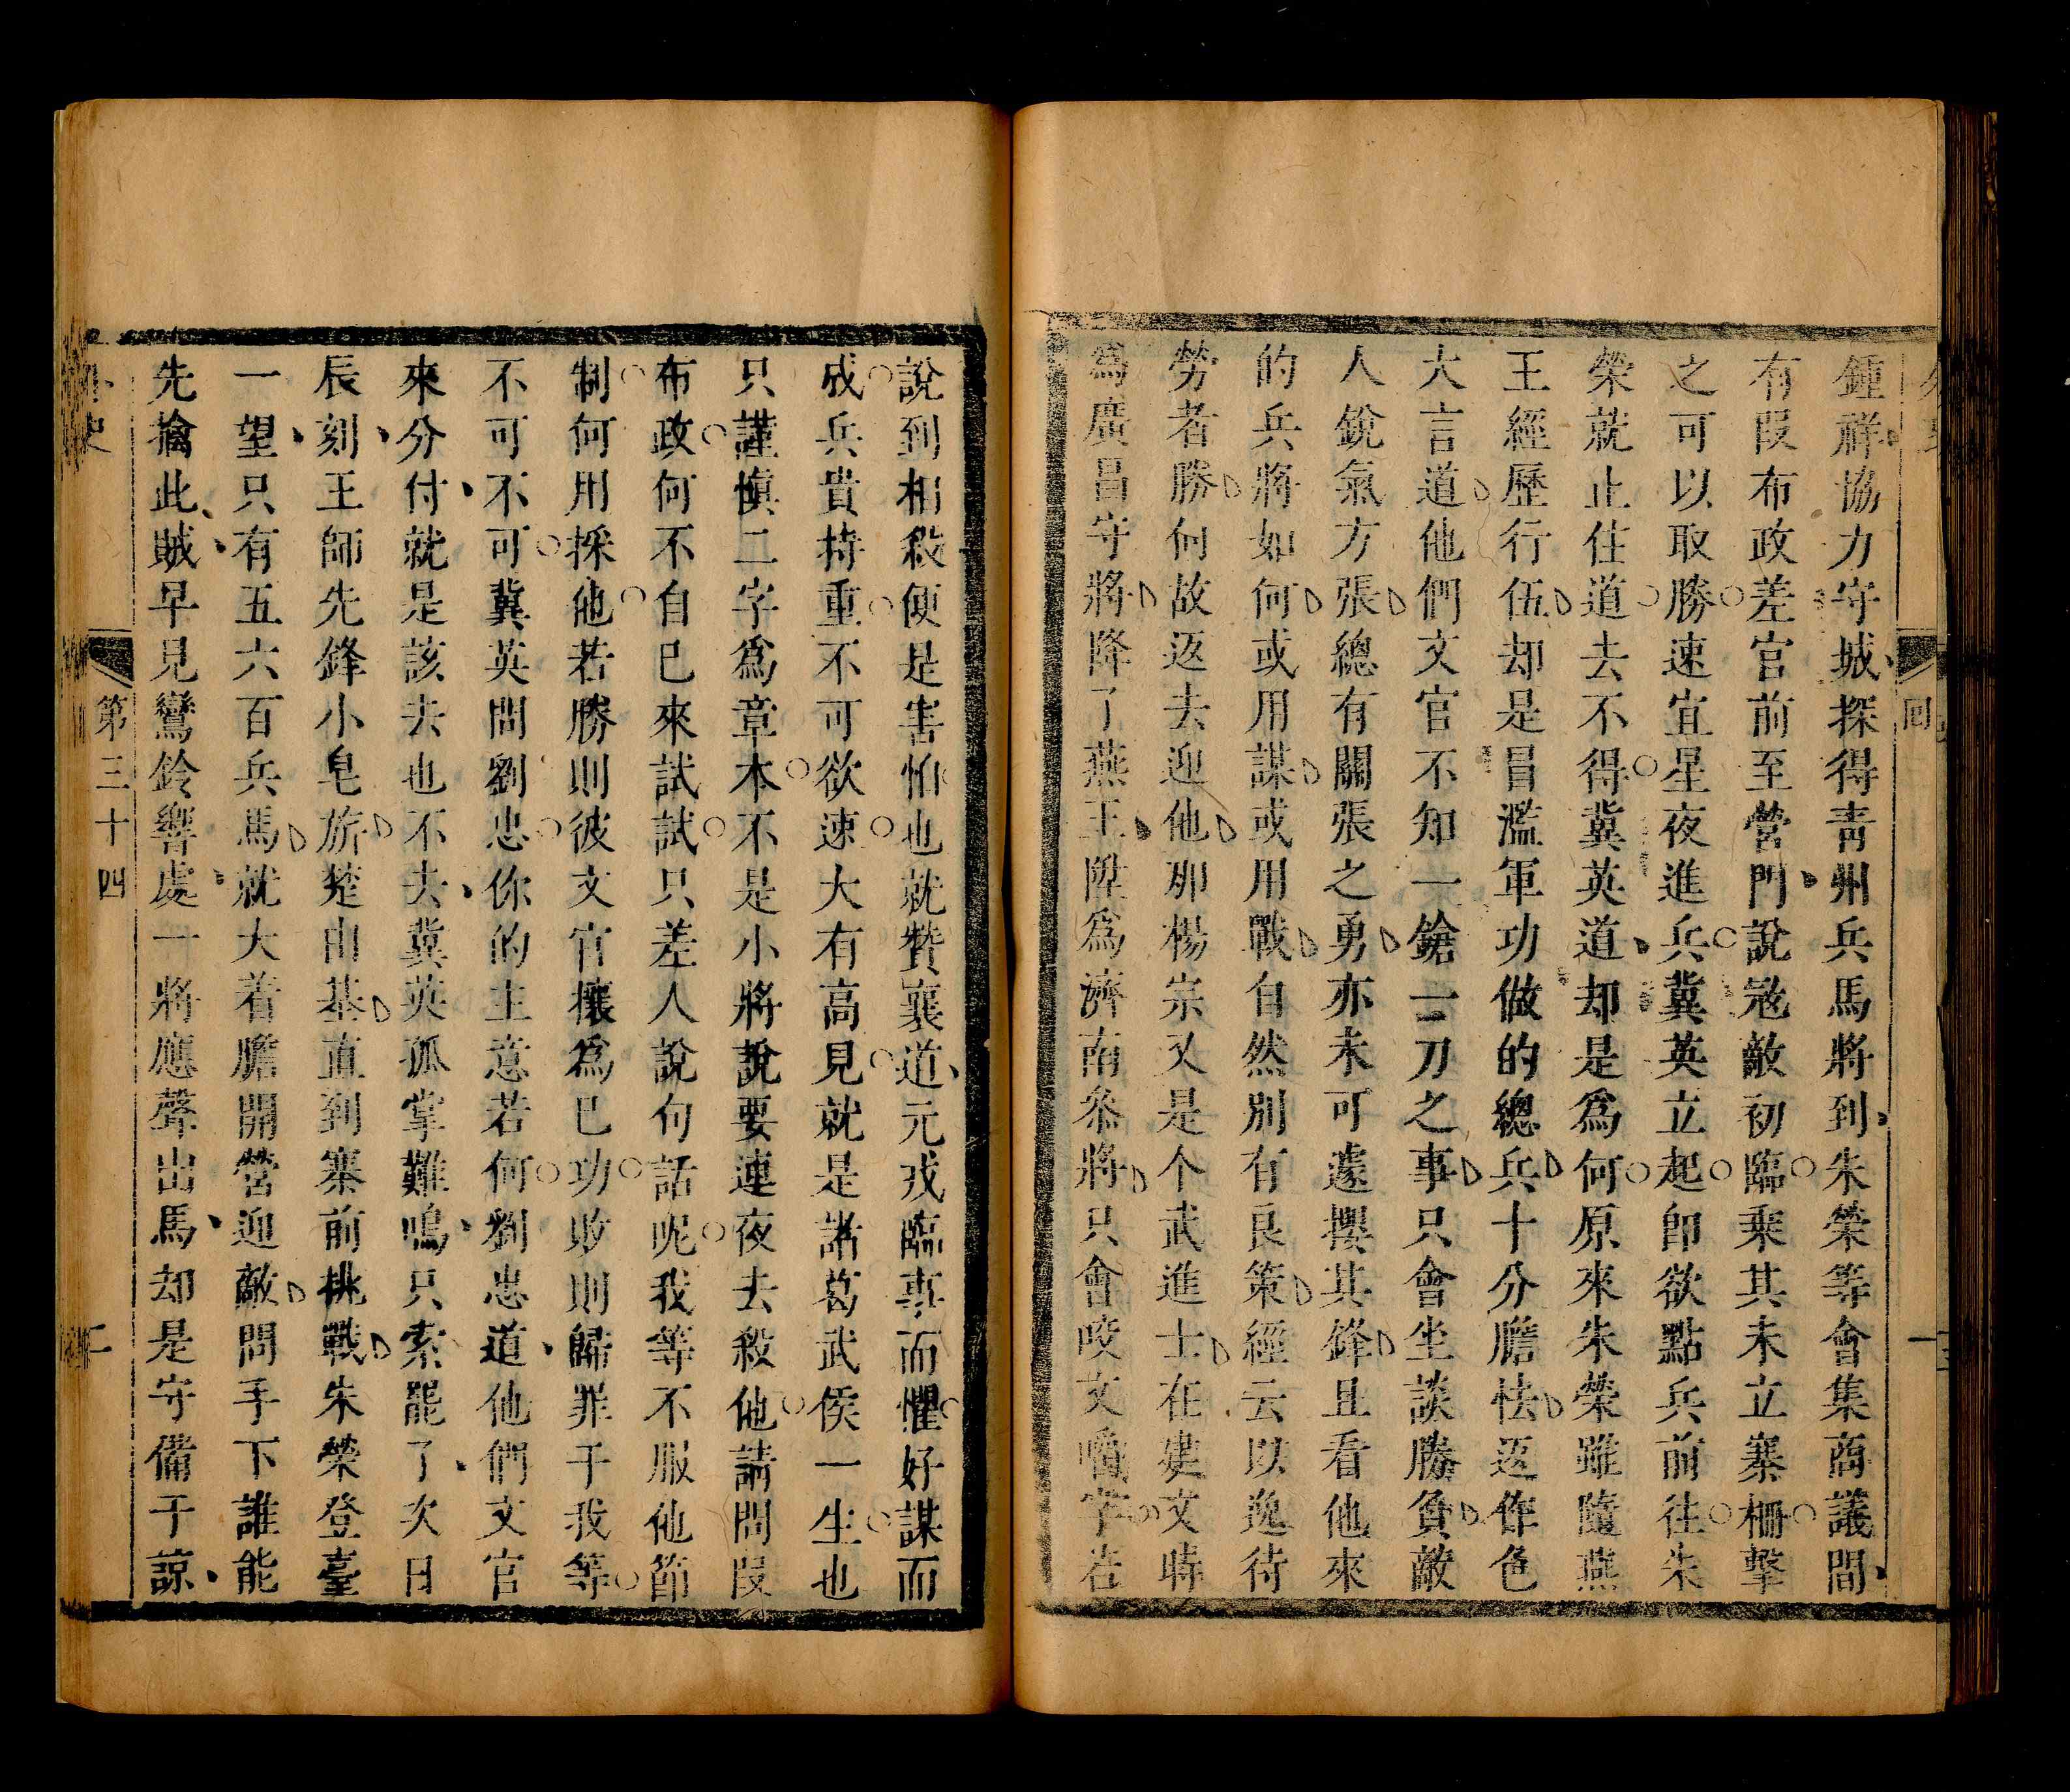 鍾祥協力守城探得靑州兵馬將到朱榮等會集商議間
有叚布政差官前至營門說㓂敵初臨乘其未立寨柵擊
之可以取勝速宜星夜進兵冀英立起卽欲點兵前往朱
榮就止住道去不得冀英道却是爲何原來朱榮雖隨燕
王經歷行伍却是冒濫軍功做的總兵十分膽怯返作色
大言道他們文官不知一鎗一刀之事只會坐談勝負敵
人銳氣方張總有關張之勇亦未可遽攖其鋒且看他來
的兵將如何或用謀或用戰自然別有良策經云以逸待
勞者勝何故返去迎他那楊宗又是个武進士在建文時
爲廣昌守將降了燕王陞爲濟南叅將只會咬文嚼字若
說到相殺便是害怕也就贊襄道元戎臨事而懼好謀而
成兵貴持重不可欲速大有高見就是諸葛武侯一生也
只謹愼二字爲章本不是小將說要連夜去殺他請問叚
布政何不自已來試試只差人說句話呢我等不服他節
制何用採他若勝則彼文官攘爲已功敗則歸罪于我等
不可不可冀英問劉忠你的主意若何劉忠道他們文官
來分付就是該去也不去冀英孤掌難鳴只索罷了次日
辰刻王師先鋒小皂旂楚由基直到寨前挑戰朱榮登臺
一望只有五六百兵馬就大着膽開營迎敵問手下誰能
先擒此賊早見鸞鈴響處一將應聲出馬却是守備于諒
外史
第三十四
二